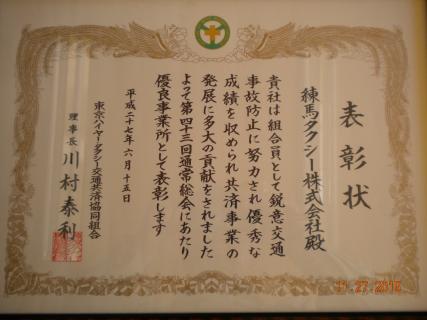 表彰状
練馬タクシー株式会社殿
貴社は組合員として鋭意交通
事故防止に努力され優秀な
成績を収められ共済事業の
発展に多大の貢献をされました
よって第四十三回通常総会にあたり
優良事業所として表彰します
平成二十七年六月十五日
東京ハイヤー・タクシー交通共済協同組合
理事長 川村泰利